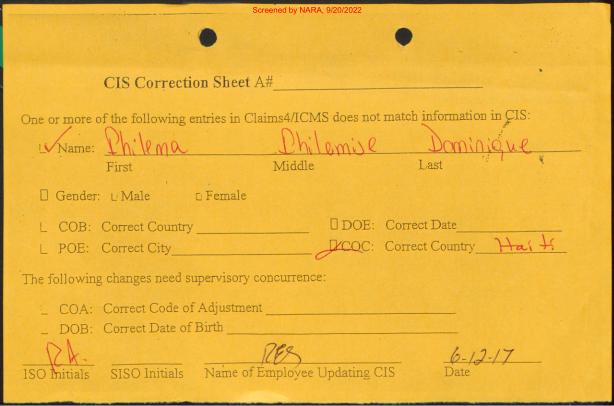 Screened by NARA, 9/20/2022
CIS Correction Sheet A#
One or more of the following entries in Claims4/ICMS does not match information in CIS:
Name: Philema Philemise Dominique
First Middle Last
Gender: Male Female
COB: Correct Country DOE: Correct Date
POE: Correct City COC: Correct Country Haiti
The following changes need supervisory concurrence:
COA: Correct Code of Adjustment
DOB: Correct Date of Birth
RA. RES 6-12-17
ISO Initials SISO Initials Name of Employee Updating CIS Date